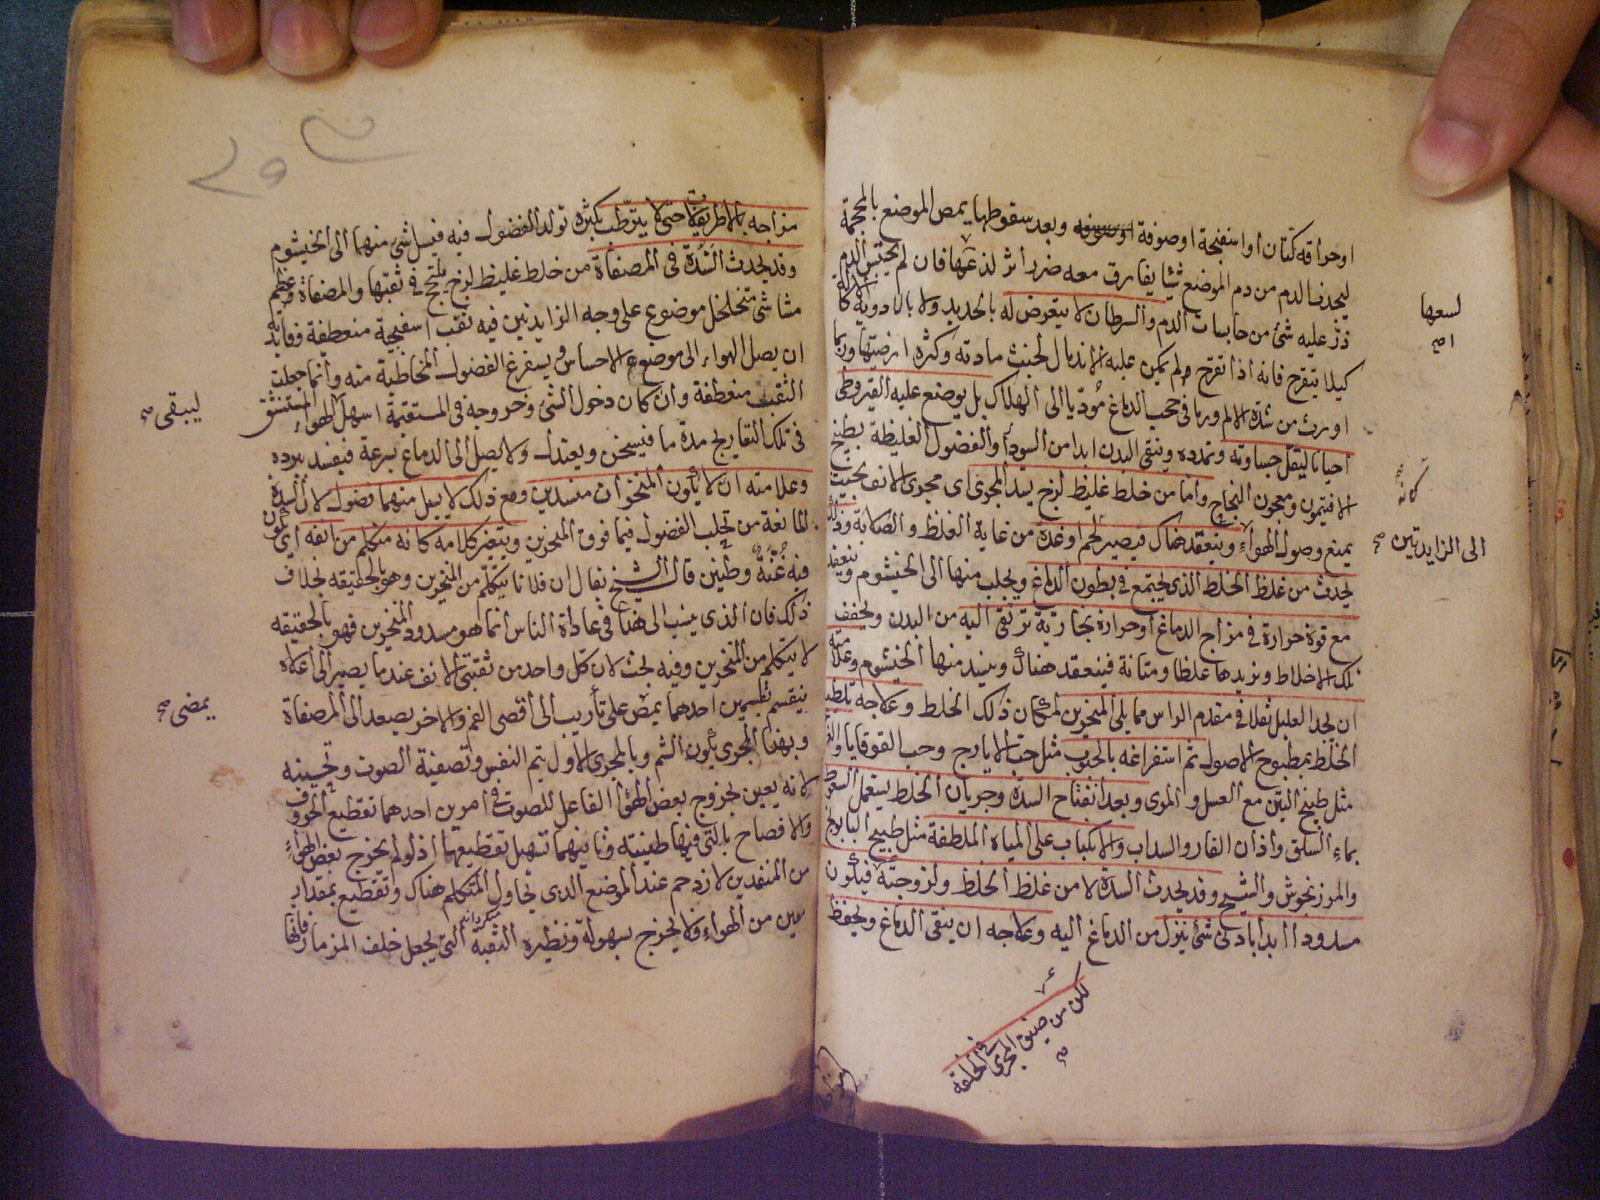 او حراقه كتان او اسفنجة او صوفة وبعد سقوطها يمص الموضع بالمحجمة
ليجذب الدم من دم الموضع شيئا يفارق معه ضرر اثر لذعها فان لم يحتبس الدم
ذر عليه شئ من حابسات الدم والسرطان لا يتعرض له بالحديد ولا بالادوية
كيلا يتقرح فانه اذا تقرح لم يمكن عليه الاندمال لخبث مادته وكثرة ارضيتها وربما
اورث من شدة الالم ورما في حجب الدماغ مؤديا الى الهلاك بل يوضع عليه القيروطى
احيانا ليقل جساوته وتمدده وينقى البدن ابدا من السوداء والفضول الغليظة بطبيخ
الافتيمون ومعجون النجاح واما من خلط غليظ لزج يسد المجرى اى مجرى الانف بحيث
يمنع وصول الهواء وينعقد هناك فيصير كلحم او غدة من غاية الغلظ والصلابة وذلك
يحدث من غلظ الخلط الذى يجتمع في بطون الدماغ ويجلب منها الى الخيشوم وينعقد
مع قوة حرارة في مزاج الدماغ او حرارة بخارية ترتقى اليه من البدن ويجفف
تلك الاخلاط ويزيدها غلظا ومتانة فينعقد هناك ويسد منها الخيشوم وعلامته
ان يجد العليل ثقلا في مقدم الراس مما يلى المنخرين لمكان ذلك الخلط وعلاجه
الخلط بمطبوخ الاصول ثم استفراغه بالحبوب مثل حب الايارج وحب القوقايا
مثل طبيخ التين مع العسل والمرى وبعد انفتاح السدة وجريان الخلط يستعمل السعوط
بماء السلق واذان الفار والسداب والانكباب على المياه الملطفة مثل طبيخ البابونج
والمرزنجوش والشيح وقد يحدث السدة لا من غلظ الخلط ولزوجته فيكون
مسدودا ابدا بادنى شئ ينزل من الدماغ اليه وعلاجه ان ينقى الدماغ ويحفظ
لسعها
صح
كانه
الى الزايدتين صح
لكن من ضيق المجرى في الخلقة
صح
مزاجه بالاطريفلات حتى لا يترطب بكثرة تولد الفضول فيه فيسيل شئ منهما الى الخيشوم
وقد يحدث السدة في المصفاة من خلط غليظ لزج يلحج في ثقبها والمصفاة عظم
مشاشى متخلخل موضوع على وجه الزايدتين فيه ثقب اسفنجية منعطفة وفايدته
ان يصل الهواء الى موضع الاحساس ويستفرغ الفضول المخاطية منه وانما جعلت
الثقب منعطفة وان كان دخول الشئ وخروجه في المستقيمة اسهل الهواء المستنشق
في تلك التعاريج مدة ما فيسخن ويعتدل ولا يصل الى الدماغ بسرعة فيفسد ببرده
وعلامته ان لا يكون المنخران منسدين ومع ذلك لا يسيل منهما فضول لان السدة
المانعة من تحلب الفضول فيما فوق المنخرين ويتغير كلامه كانه متكلم من انفه اى يكون
فيه غنة وطنين قال الشيخ يقال ان فلانا يتكلم من المنخرين وهو بالحقيقه بخلاف
ذلك فان الذى ينسب الى هذا في عادة الناس انما هو مسدود المنخرين فهو بالحقيقه
لا يتكلم من المنخرين وفيه بحث لان كل واحد من ثقبتى الانف عندما يصير الى اعلاه
ينقسم بقسمين احدهما يمص على تأريب الى أقصى الفم والاخر يصعد الى المصفاة
وبهذا المجرى يكون الشم وبالمجرى الاول يتم النفس وتصفية الصوت وتحسينه
لانه يعين بخروج بعض الهواء الفاعل للصوت في امرين احدهما تقطيع الحروف
والافصاح بالتى فيها طنينية وثانيهما تسهيل تقطيعها اذ لو لم يخرج بعض الهواء
من المنفذين لازدحم عند الموضع الذى يحاول المتكلم هناك وتقطيع بمقدار
معين من الهواء فلا يخرج بسهولة ونظيره الثقبة التى يجعل خلف المزمار فانها
ليبقى صح
يمضى صح